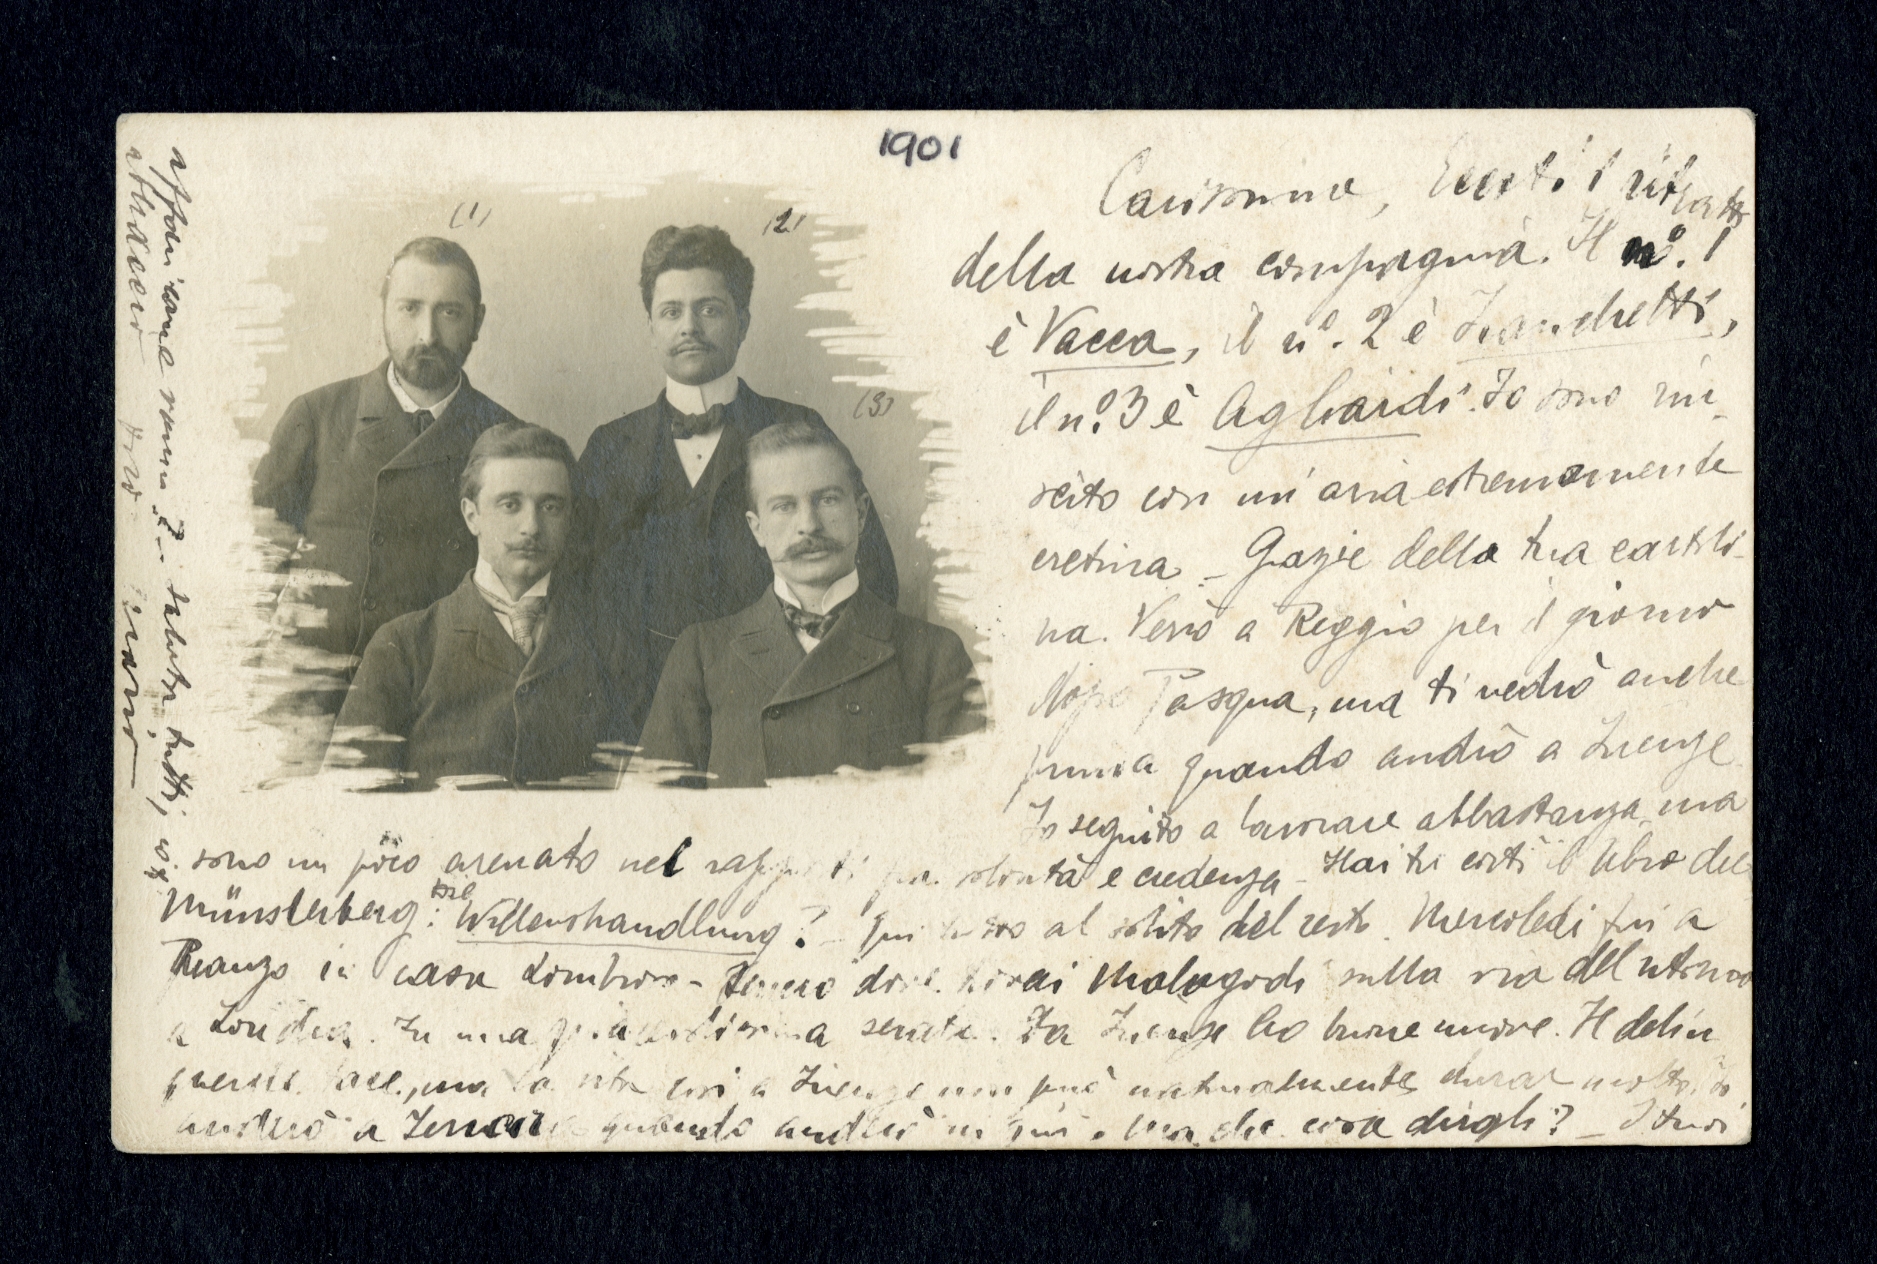 1901
(1)
(2)
(3)
Carissimo, Eccoti il ritratto
della nostra compagnia. Il nº. 1
è Vacca, il nº. 2 è
il nº. 3 è Agliardi. Io sono riu-
scito con un'aria estremamente
cretina – Grazie della tua cartoli-
na. Verrò a Reggio per il giorno
dopo Pasqua, ma ti vedrò anche
prima quando andrò a Firenze
Io seguito a lavorare abbastanza, ma
sono un poco arenato nel volontà e credenza – Hai tu costì il libro del
Münsterberg: Die Willenshandlung? – Qui al solito del resto. Mercoledì fui a
Pranzo in casa Lombroso – Malagodi sulla via del ritorno
a Londra. Fu una serata. Da Firenze ho buone nuove. Il delin
quente tace, ma la vita così a Firenze non può naturalmente durar molto. Io
andrò a quando andrò in giù. Ma che cosa dirgli? – I tuoi
affari come vanno? – saluta tutti, e
abbiti tuo